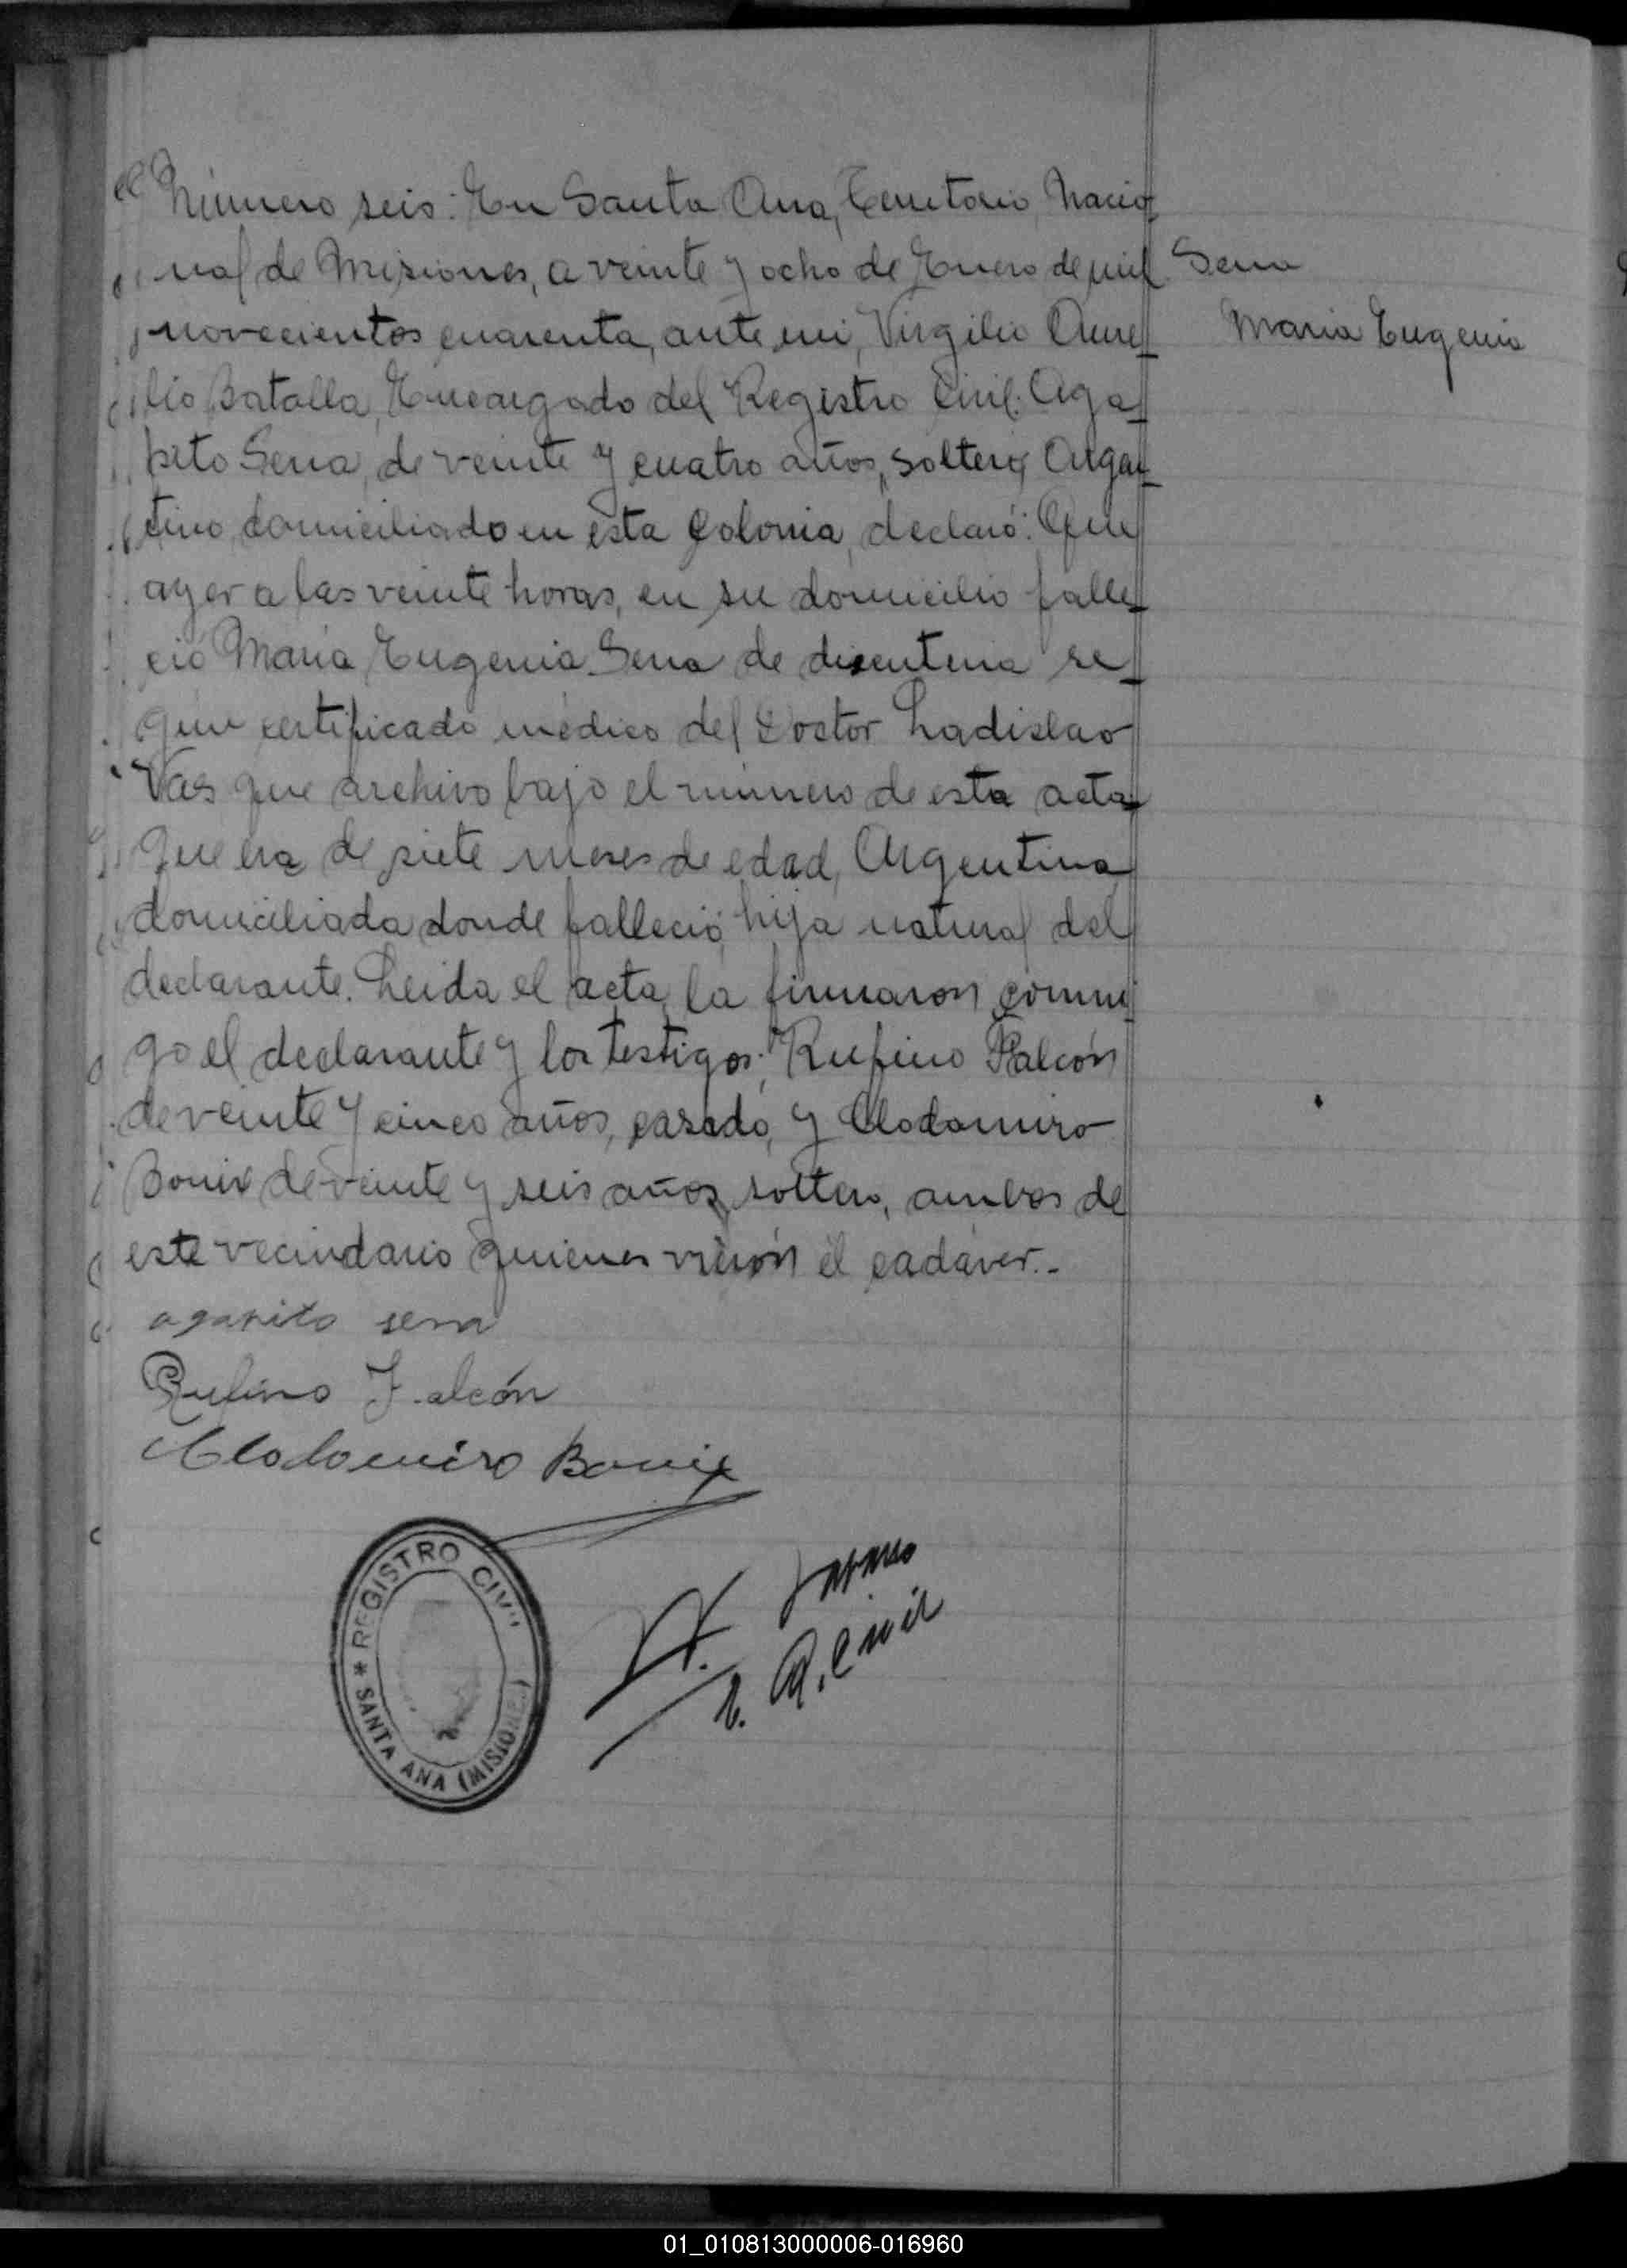 Número seis: En Santa Ana, Territorio Nacio-
nal de Misiones, a veinte y ocho de Enero de mil
novecientos cuarenta, ante mi, Virgilio Aure-
lio Batalla, Encargado del Registro Civil: Aga-
pito Sena, de veinte y cuatro años, soltero, Argen-
tino, domiciliado en esta Colonia, declaró: Que
ayer a las veinte horas, en su domicilio falle-
ció María Eugenia Sena de disenteria se-
gún certificado médico del Doctor Ladislao
Vas que archivo bajo el número de esta acta
que era de siete meses de edad, Argentina,
domiciliada donde falleció, hija natural del
declarante. Leida el acta, la firmaron conmi-
go el declarante y los testigos; Rufino Falcón
de veinte y cinco años, casado, y Clodomiro
Bonix de veinte y seis años, soltero, ambos de
este vecindario quienes vieron el cadáver.-
Sena
Maria Eugenia
agapito sena
Rufino Falcón
Clodomiro Bonix
REGISTRO CIVIL
* SANTA ANA (MISIONES)
E. R. Civil
01_010813000006-016960